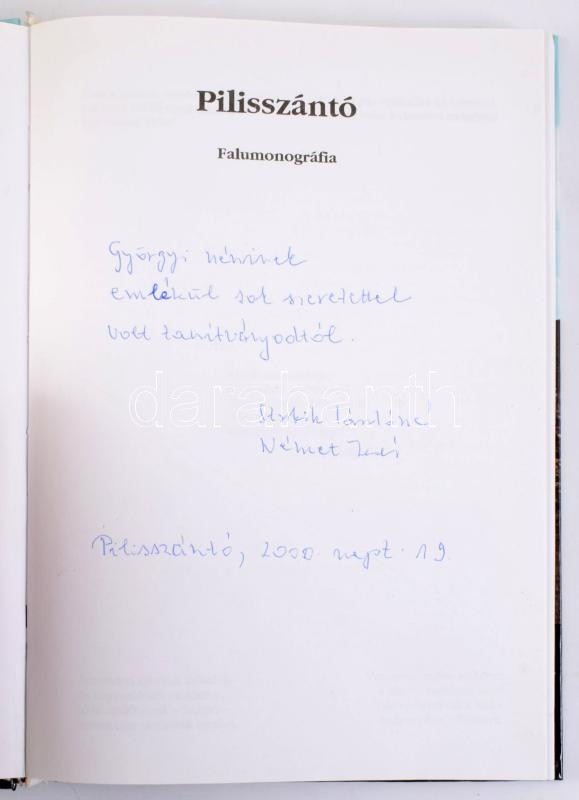 Pilisszántó
Falumonográfia
Györgyi néninek
emlékül sok szeretettel
volt tanítványodtól.
darabanth
Német
Pilisszántó, 2000. szept. 19.